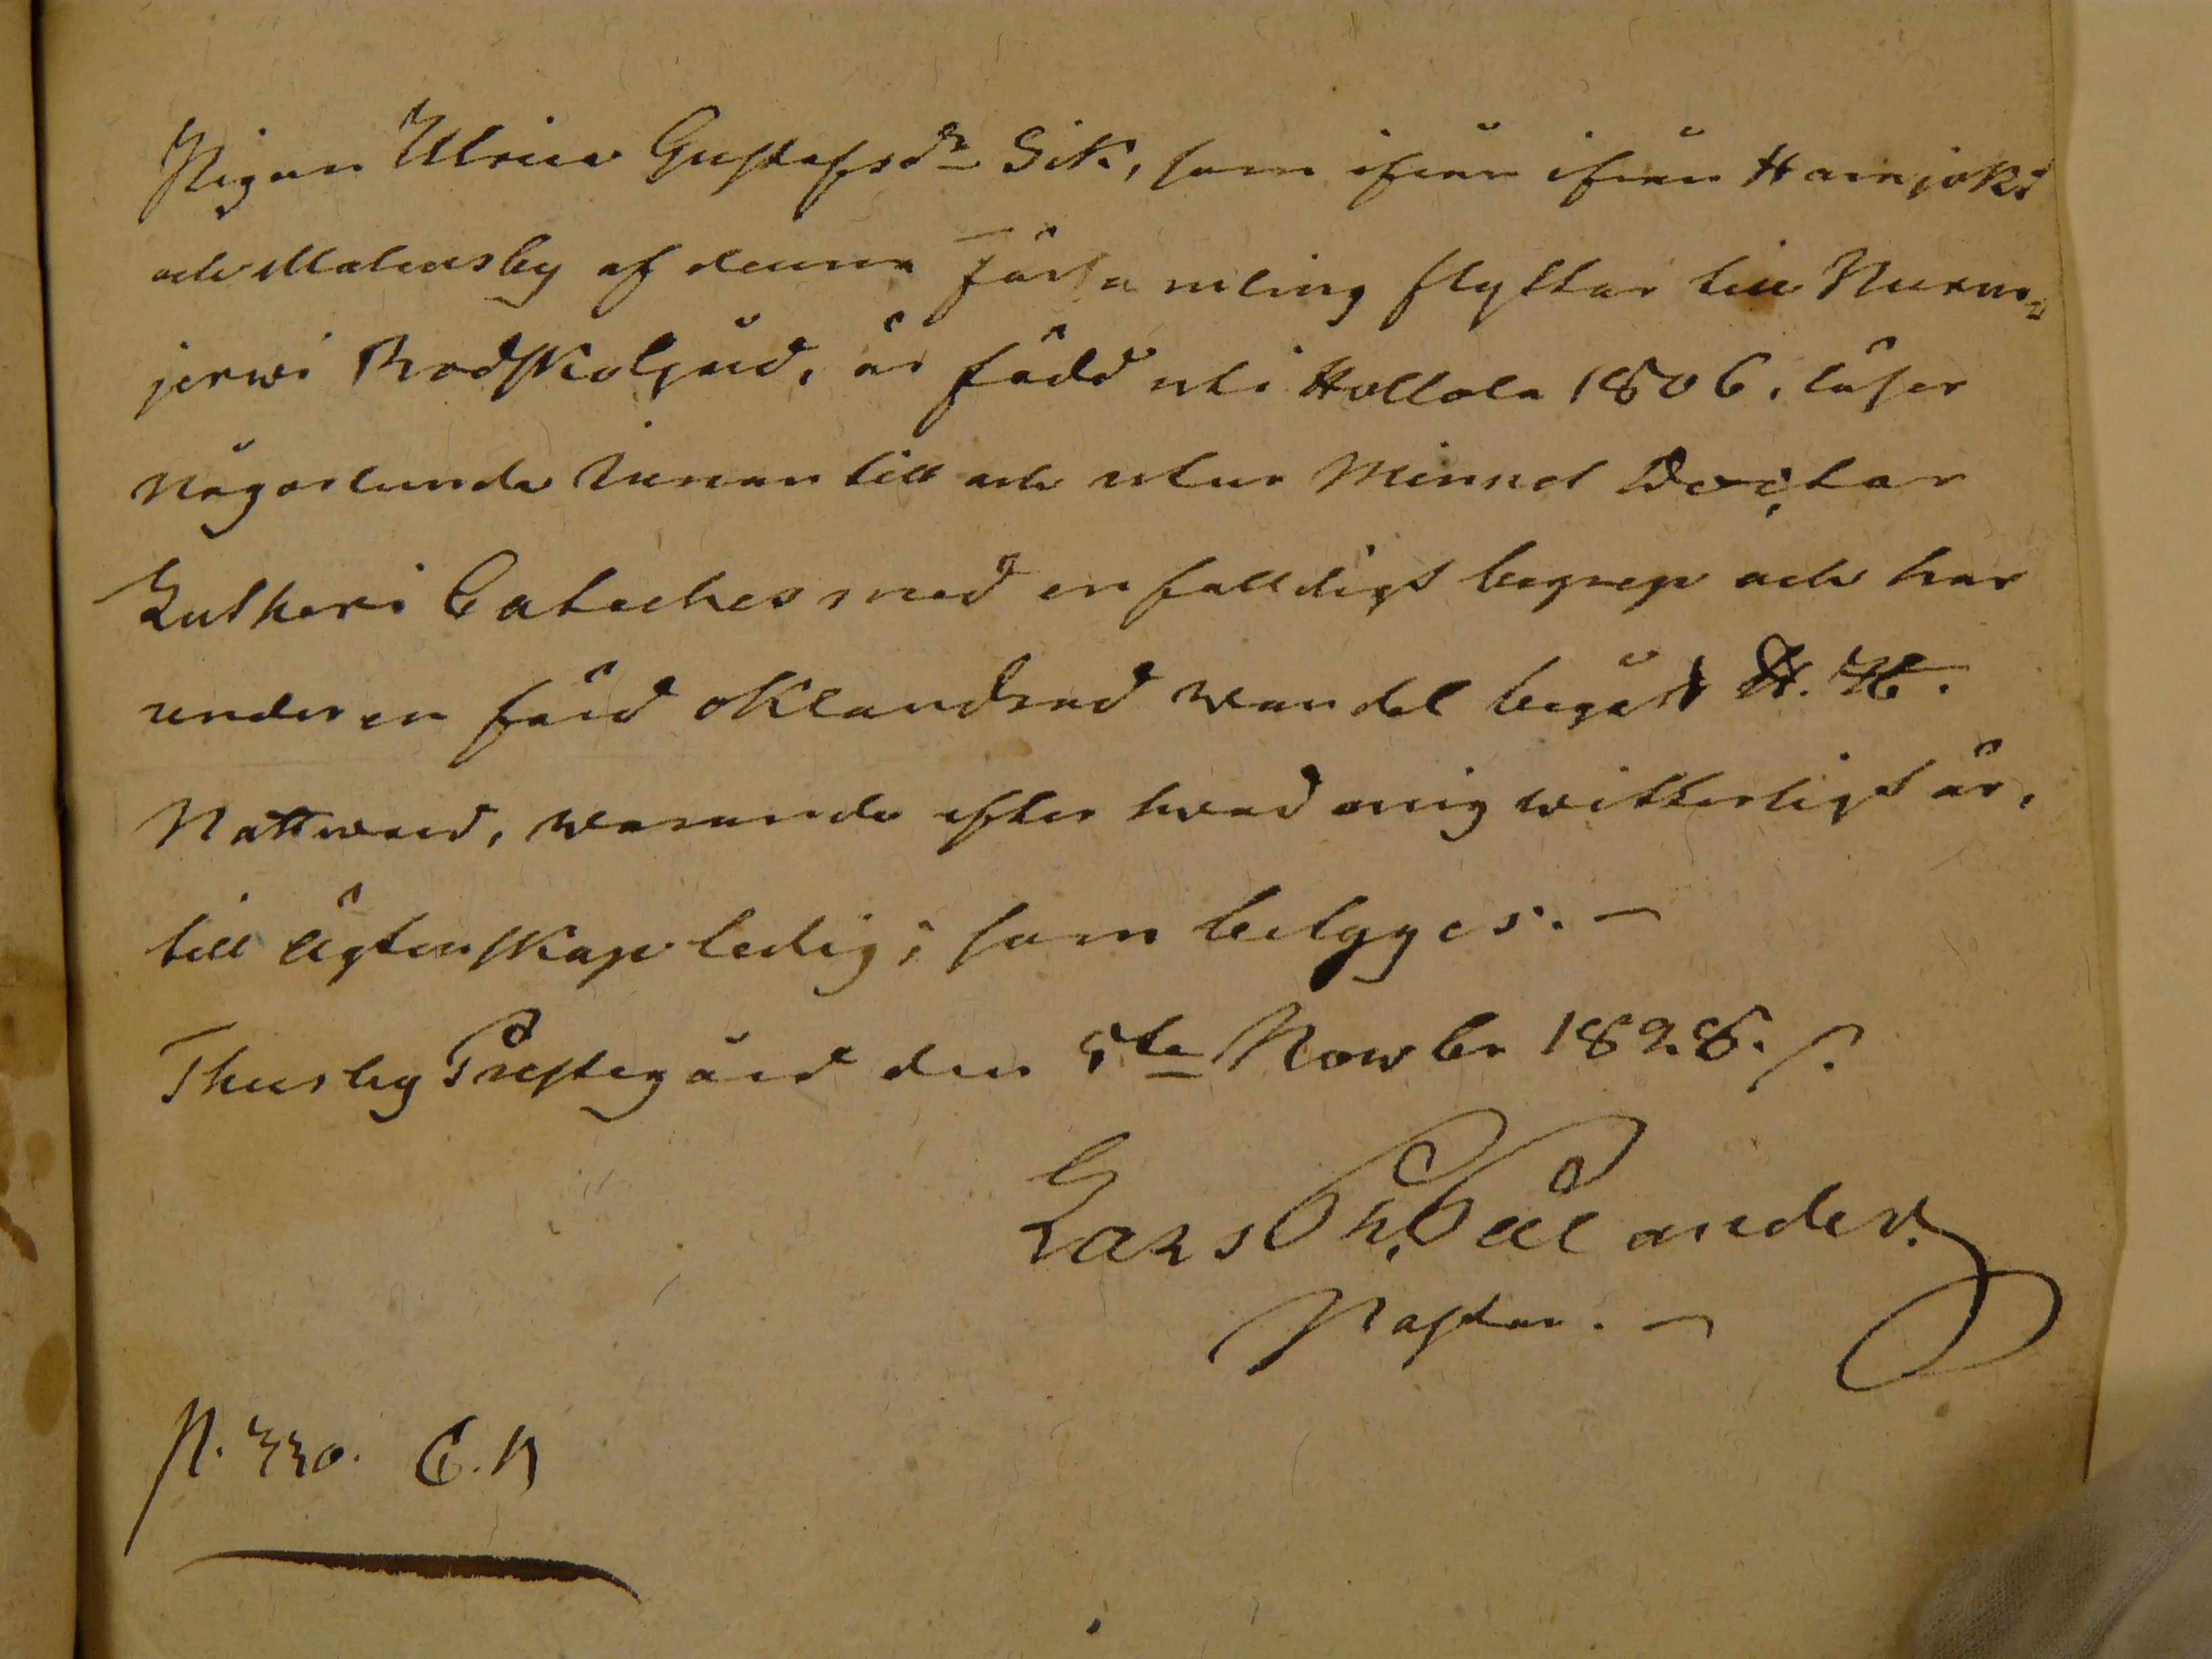 Pigan Ulrica Gustafsdr Sik, som ifrån ifrån Hainjoki
och Matensby af denna Församling flyttar till Nurm=
jerwi BodskolGärd, är född uti Hollola 1806, läser
Någorlunda Innantill och utur Minnet Doctor
Lutheri Cateches med enfalldigt begrep och har
under en förd oklandrad wandel begåt H. H.
Nattward, warande efter hwad mig witterligt är,
till Ägtenskap ledig; som betygges. —
Thusby Prestegård den 5te Nowbr 1828.
Lars Ph. Pålander.
Pastor. —
P. 330. C. B